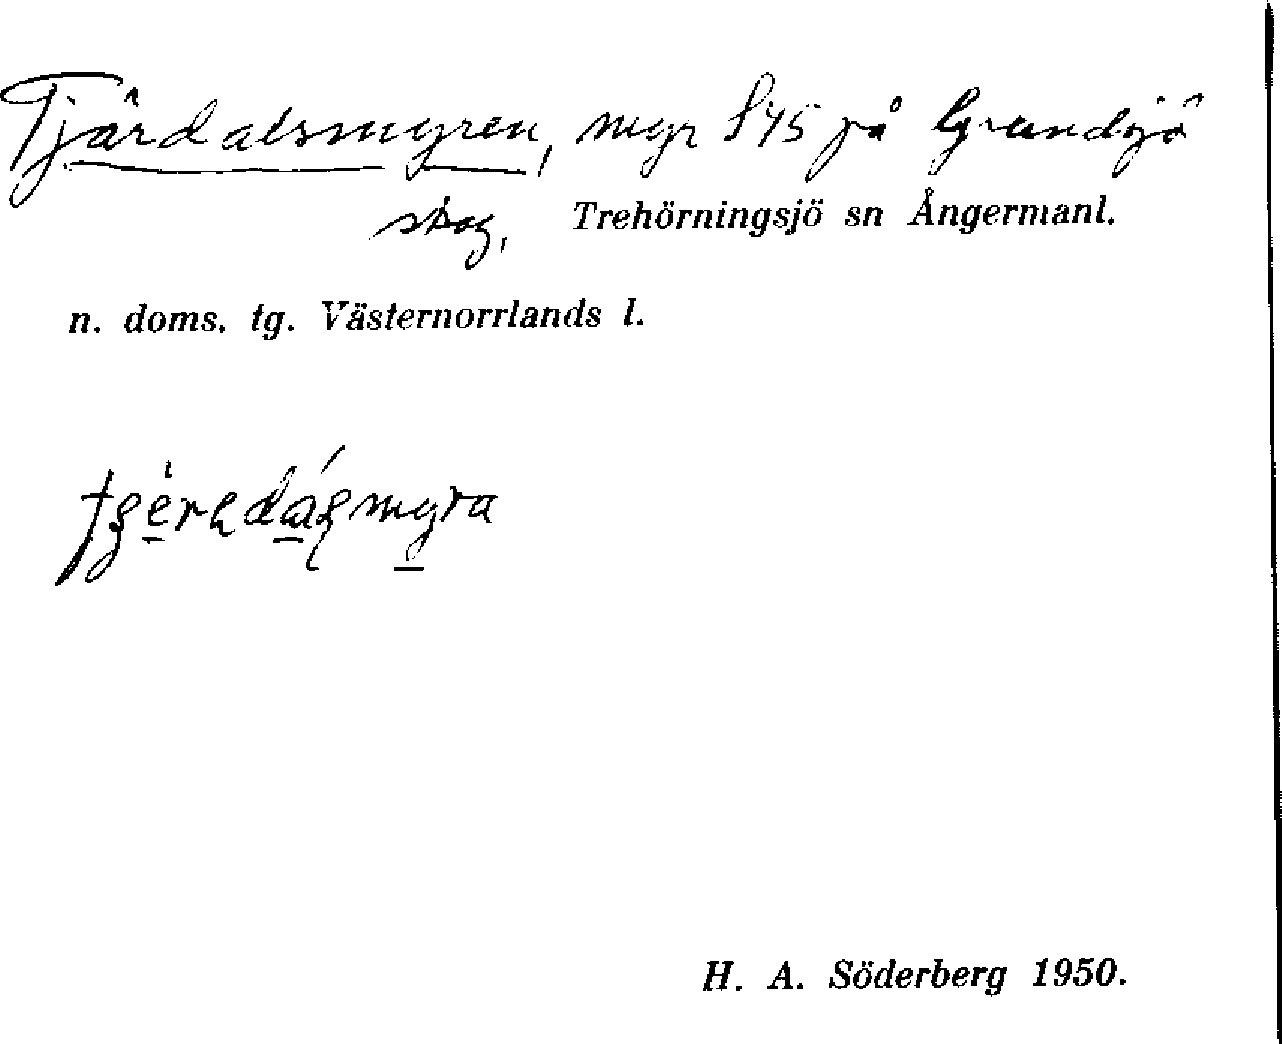 Tjärdalsmyren, myr S 45 på Grundsjö
skog, Trehörningsjö sn Ångermanl.
n. doms. tg. Västernorrlands l.
H. A. Söderberg 1950.